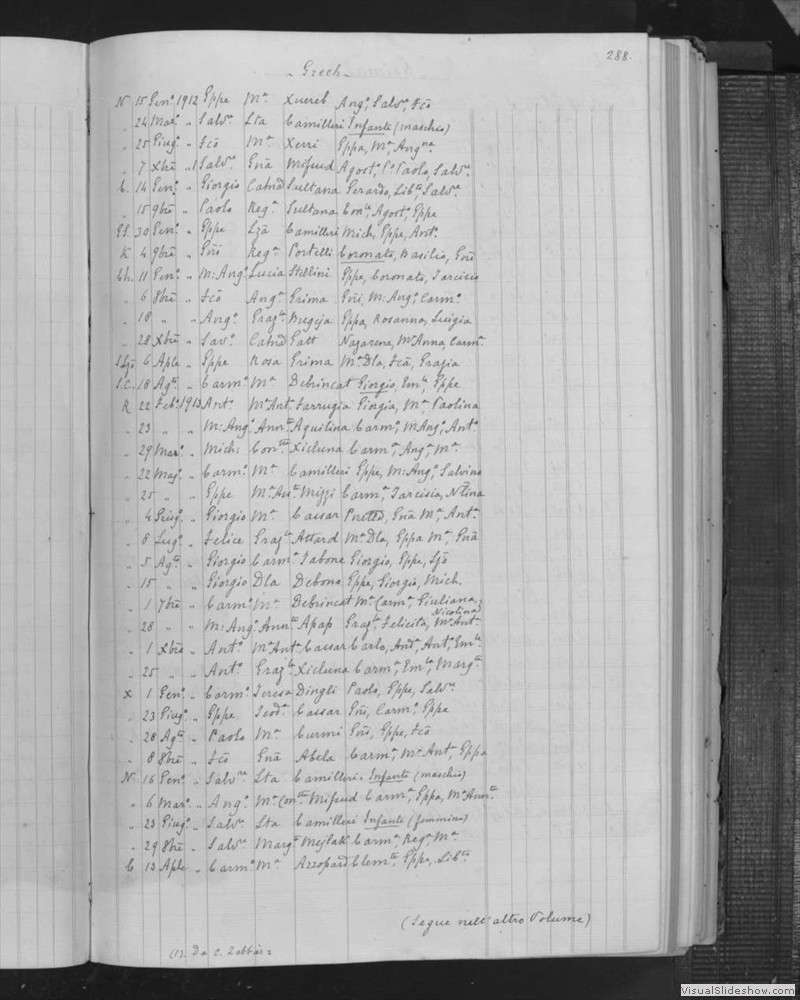 288.
Grech
N 15 Genº 1912 Eppe Mª Xuereb Angº, Salvª, Fcō
" 24 Magº " Salvʳᵉ Lta Camilleri Infante (maschio)
" 25 Giugº " Fcō Mª Xerri Eppa, Mª Angⁿᵃ
" 7 Xbrē " Salvʳᵉ Gnā Mifsud Agostº, Pº Paolo, Salvʳᵉ
C. 14 Genº " Giorgio Catnā Sultana Gerardo, Libᵗᵃ, Salvʳᵉ
" 15 9brē " Paolo Regª Sultana Emˡᵃ, Agostº, Eppe
30 Genº " Eppe Ljā Camilleri Mich, Eppe, Antº
K 4 9brē " Gñi Regª Portelli Coronato, Basilio, Gñi
Ch. 11 Genº " M: Angº Lucia Stellini Eppe, Coronato, Tarcisio
" 6 8brē " Fcō Angª Grima Gñi, M: Angº, Carmº
" 18 " " Angº Grazⁿ Bugeja Eppa, Rosanna, Luigia
" 28 Xbrē " Savº Catnā Gatt Nazarena, Mª Anna, Carmª
6 Aple " Eppe Rosa Grima Mª Dla, Fcā, Grazia
S.C. 18 Agᵗᵒ " Carmº Mª Debrincat Giorgio, Emˡᵉ, Eppe
R 22 Febº 1913 Antº Mª Antª Farrugia Giorgia, Mª, Paolina
" 23 " " M: Angº Annᵗᵃ Aquilina Carmº, M: Angº, Antº
" 29 Marº " Mich: Conᵗᵗᵃ Xicluna Carmª, Angª, Mª
" 22 Magº " Carmº Mª Camilleri Eppe, M: Angº, Salvino
" 25 " " Eppe Mª Assᵗᵃ Mizzi Carmª, Tarcisia, Ntina
" 4 Giugº " Giorgio Mª Cassar Gnā Mª, Antª
" 8 Lugº " Felice Grazⁿ Attard Mª Dla, Eppa Mª, Gnā
" 5 Agᵗᵒ " Giorgio Carmª Tabone Giorgio, Eppe, Ljō
" 15 " " Giorgio Dla Debono Eppe, Giorgio, Mich.
" 1 7brē " Carmº Mª Debrincat Mª Carmª, Giuliana, Nicolina
" 28 " " M: Angº Annᵗᵃ Apap Grazⁿ, Felicita, Mª Antª
" 1 Xbrē " Antº Mª Antª Cassar Carlo, Andª, Antº, Emˡᵉ
" 25 " " Antº Grazⁿ Xicluna Carmª, Emˡᵃ, Margᵗᵃ
X 1 Genº " Carmº Teresa Dingli Paolo, Eppe, Salvʳᵉ
" 23 Giugº " Eppe Teodª Cassar Gñi, Carmº, Eppe
" 28 Agᵗᵒ " Paolo Mª Curmi Gñi, Eppe, Fcō
" 8 8brē " Fcō Gnā Abela Carmª, Mª Antª, Eppa
N. 16 Genº " Salvʳᵉ Lta Camilleri Infante (maschio)
" 6 Marº " Angº Mª Conᵗᵗᵃ Mifsud Carmª, Eppa, Mª Annᵗᵃ
" 23 Giugº " Salvʳᵉ Lta Camilleri Infante (feminina)
" 29 8brē " Salvʳᵉ Margᵗᵃ Mejlak Carmª, Regª, Mª
C. 13 Aple " Carmº Mª Azzopardi Clemᵗᵉ, Eppa, Libᵗᵃ
(Segue nell'altro Volume)
(1). Da C. Zabbar
VisualSlideshow.com